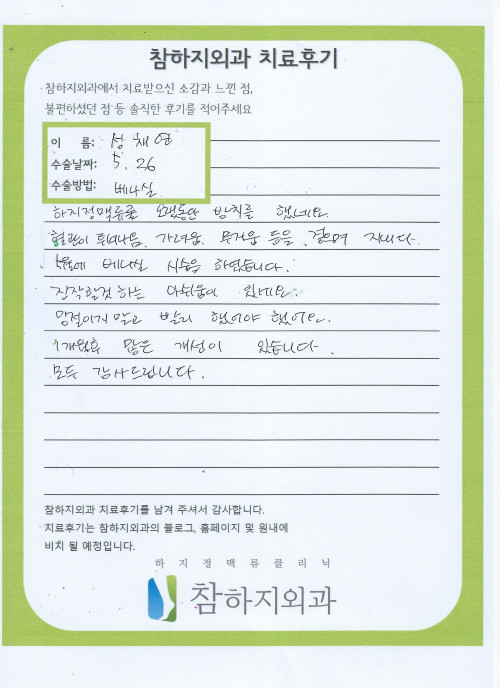 참하지외과 치료후기
참하지외과에서 치료받으신 소감과 느낀 점,
불편하셨던 점 등 솔직한 후기를 적어주세요
이 름: 성채연
수술날짜: 5. 26
수술방법: 베나실
하지정맥류를 오랫동안 방치를 했네요.
혈관이 튀어나옴, 가려움, 무거움 등을 겪으며 지내다.
베나실 시술을 하였습니다.
진작할껄 하는 아쉬움이 있네요.
망설이지 말고 빨리 했어야 했어요.
1개월후 많은 개선이 있습니다.
모두 감사드립니다.
참하지외과 치료후기를 남겨 주셔서 감사합니다.
치료후기는 참하지외과의 블로그, 홈페이지 및 원내에
비치 될 예정입니다.
하지정맥류클리닉
참하지외과